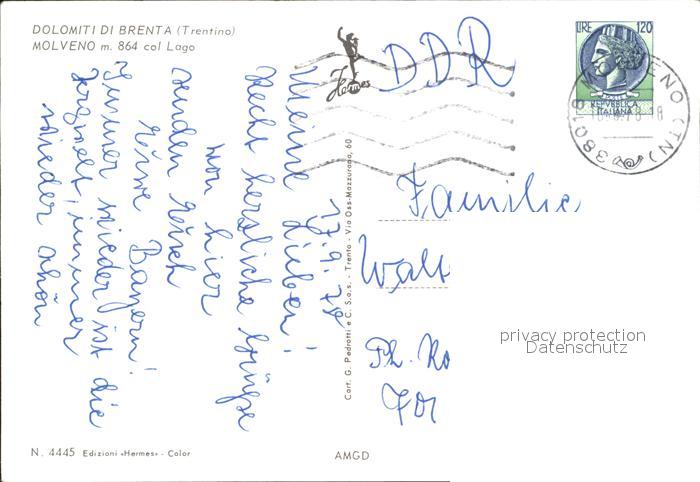 DOLOMITI DI BRENTA (Trentino)
MOLVENO m. 864 col Lago
Hermes
DDR
LIRE 120
REPUBBLICA
ITALIANA
38018 MOLVENO (TN)
17.9.78
Meine Lieben!
Recht herzliche Grüße
von hier
senden Euch
Eure Bayern!
Immer wieder ist die
immer
wieder schön
Cart. G. Pedrotti e C. S.a.s. - Trento - Via Oss-Mazzurana, 60
Familie
Walt
Ph. Ro
For
privacy protection
Datenschutz
N. 4445 Edizioni «Hermes» - Color
AMGD